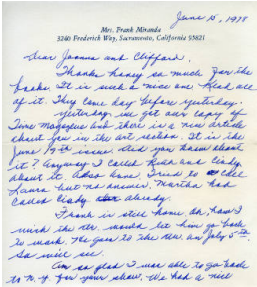 June 15, 1978
Mrs. Frank Miranda
3240 Frederick Way, Sacramento, California 95821
Dear Joanna and Clifford,
Thanks honey so much for the
books. It is such a nice one. Read all
of it. They came day before yesterday.
Yesterday we got our copy of
Time Magazine and there is a nice article
about you in the art section. It is the
June 19th issue. Did you know about
it? Anyway I called Ruth and Cindy
about it. Also have tried to call
Laura but no answer. Martha had
called Cindy already.
Frank is still home. Oh, how I
wish the Dr. would let him go back
to work. He goes to the Dr. on July 5th.
So will see.
Am so glad I was able to go back
to N.Y. for your show. We had a nice